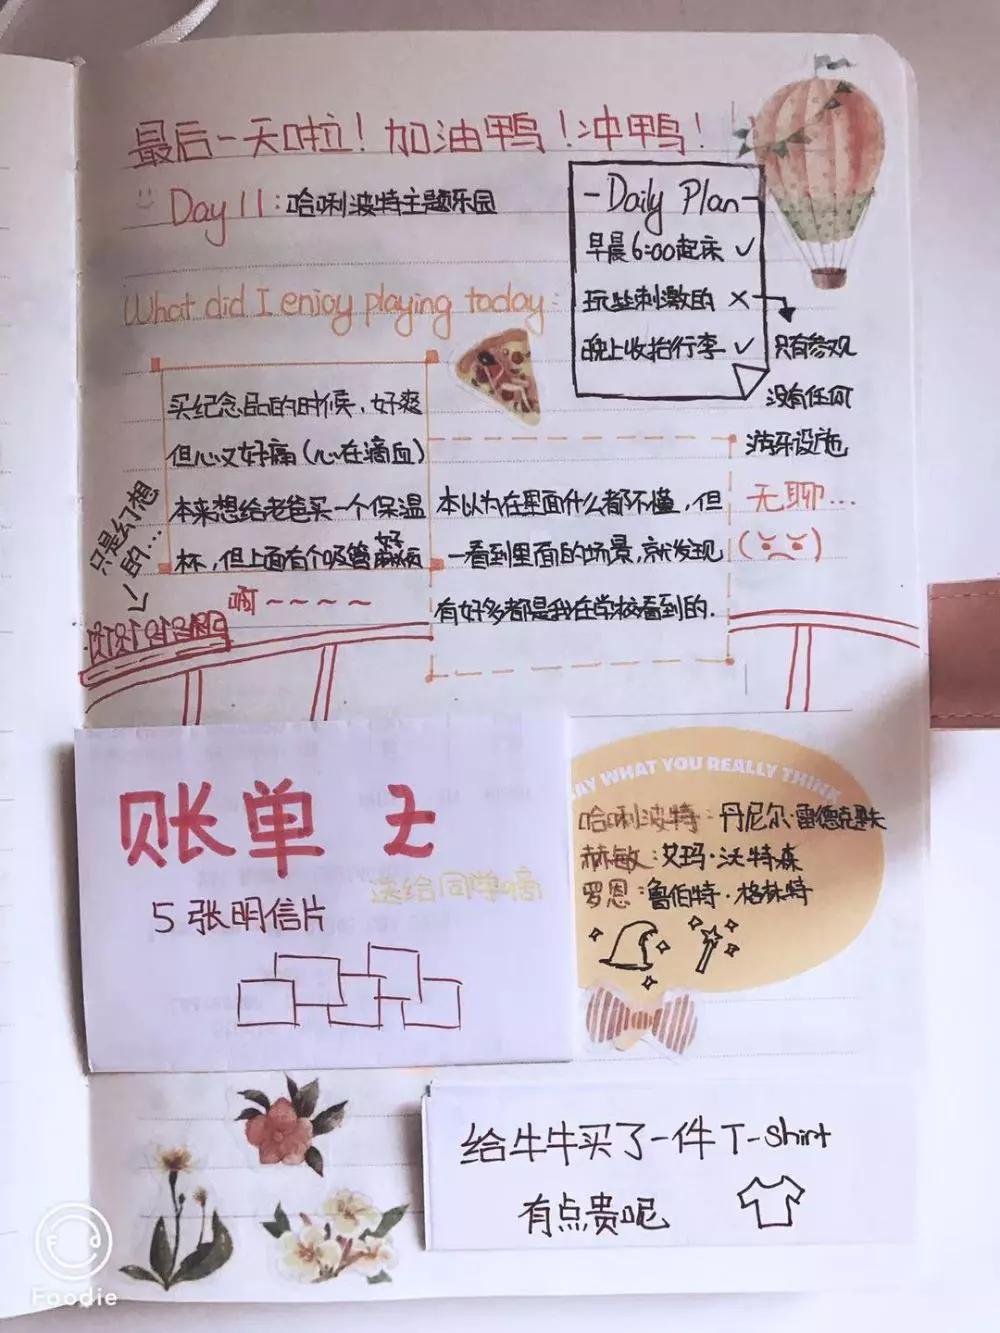 最后一天啦！加油鸭！冲鸭！
Day 11：哈唎波特主题乐园
-Daily Plan-
早晨6:00起床 ✓
玩些刺激的 ×
晚上收拾行李 ✓
只有参观
没有任何
游乐设施
无聊...
What did I enjoy playing today:
买纪念品的时候，好爽
但心又好痛（心在滴血）
本来想给老爸买一个保温
杯，但上面有个吸管好麻烦
本以为在里面什么都不懂，但
一看到里面的场景，就发现
有好多都是我在学校看到的.
只是幻想
的...
啊～～～～
账单
送给同学嘀
5张明信片
AY WHAT YOU REALLY THINK
哈唎波特：丹尼尔·雷德克里夫
赫敏：艾玛·沃特森
罗恩：鲁伯特·格林特
给牛牛买了一件T-Shirt
有点贵呢
Foodie